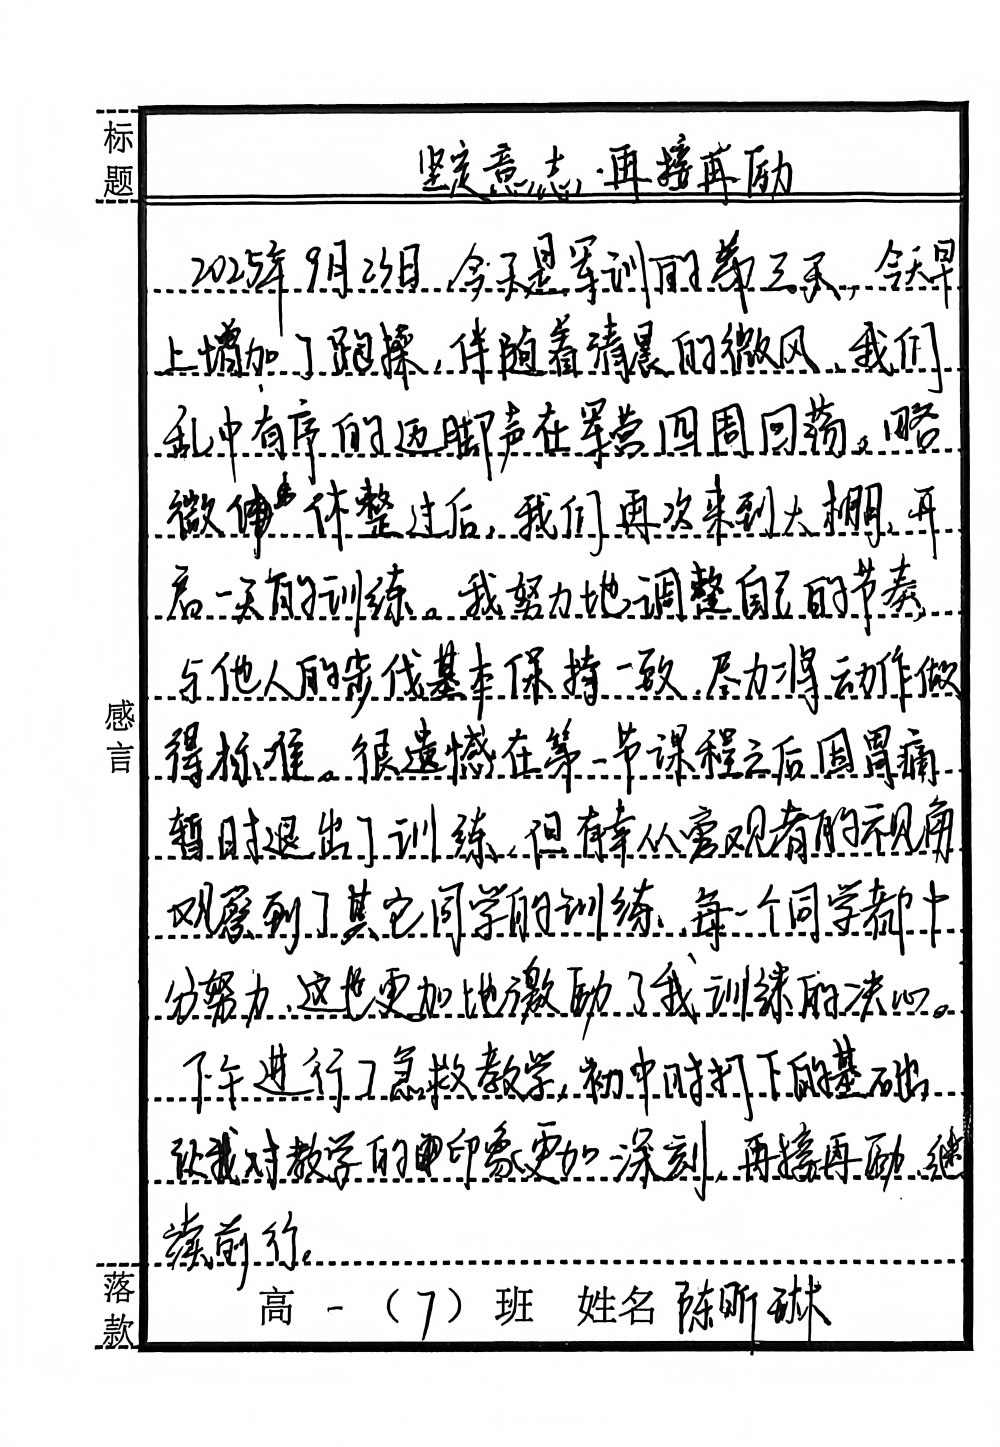 标题
坚定意志·再接再励
2025年9月23日,今天是军训的第三天,今天早
上增加了跑操,伴随着清晨的微风,我们
乱中有序的迈脚声在军营四周回荡。略
微休整过后,我们再次来到大棚,开
启一天的训练。我努力地调整自己的节奏,
与他人的步伐基本保持一致,尽力将动作做
得标准。很遗憾在第一节课程之后因胃痛
暂时退出了训练,但有幸从旁观者的视角
观察到了其它同学的训练,每一个同学都十
分努力,这也更加地激励了我训练的决心。
下午进行了急救教学,初中时打下的基础,
让我对教学的印象更加深刻,再接再励,继
续前行。
感言
落款
高一(7)班 姓名 陈昕琳